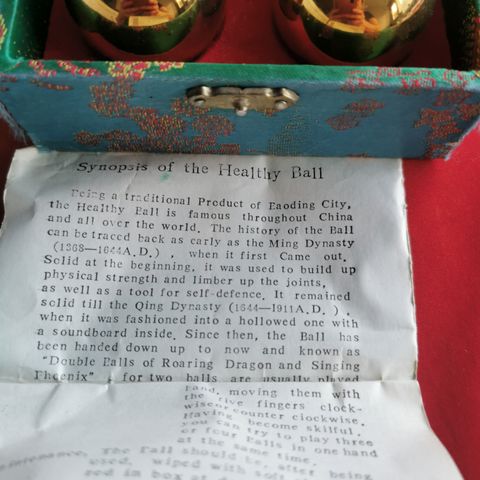 Synopsis of the Healthy Ball
Being a traditional Product of Baoding City,
the Healthy Ball is famous throughout China
and all over the world. The history of the Ball
can be traced back as early as the Ming Dynasty
(1368—1644A.D.) , when it first Came out.
Solid at the beginning, it was used to build up
physical strength and limber up the joints,
as well as a tool for self-defence. It remained
solid till the Qing Dynasty (1644—1911A.D. ) ,
when it was fashioned into a hollowed one with
a soundboard inside. Since then, the Ball has
been handed down up to now and known as
"Double Balls of Roaring Dragon and Singing
Phoenix" , for two balls are usually played
hand, moving them with
the five fingers clock-
wise or counter clockwise.
Having become skilful,
you can try to play three
or four Balls in one hand
at the same time.
The Ball should be, after being
used, wiped with soft
red in box at